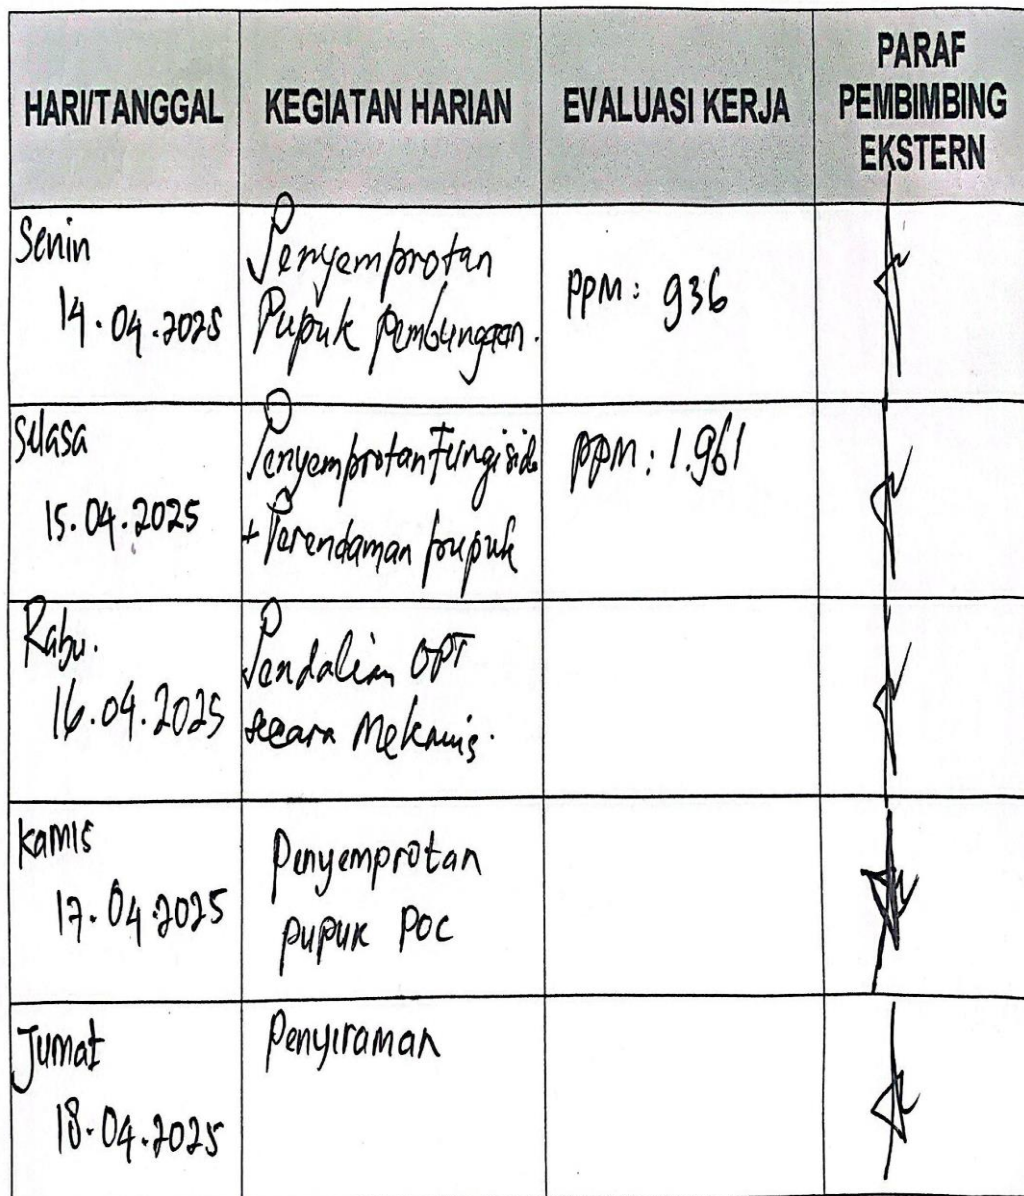 HARI/TANGGAL
KEGIATAN HARIAN
EVALUASI KERJA
PARAF
PEMBIMBING
EKSTERN
Senin
14.04.2025
Penyemprotan
Pupuk pembungaan.
PPM: 936
Selasa
15.04.2025
Penyemprotan Fungisida
+ Perendaman pupuk
PPM: 1.961
Rabu.
16.04.2025
Pendalian OPT
secara Mekanis.
Kamis
17.04.2025
Penyemprotan
pupuk POC
Jumat
18.04.2025
Penyiraman